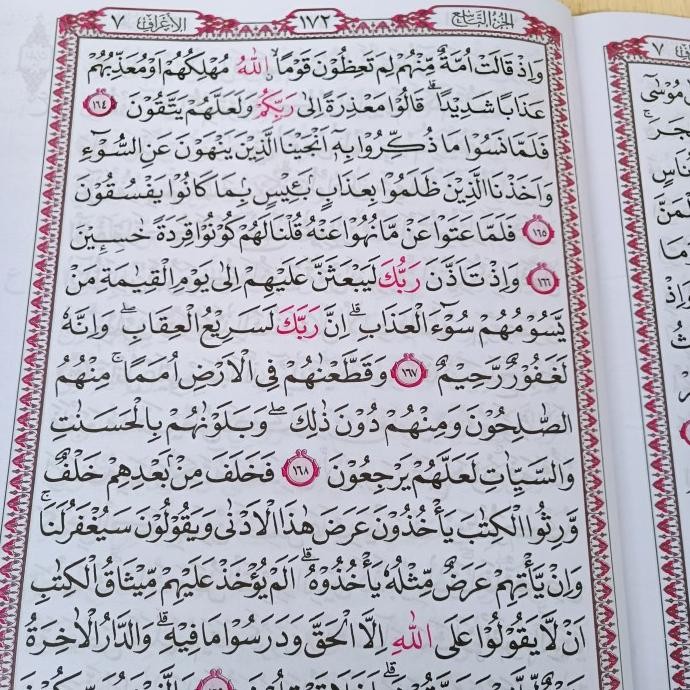 الأعراف ٧
١٧٢
الجزء التاسع
وَاِذْ قَالَتْ اُمَّةٌ مِّنْهُمْ لِمَ تَعِظُوْنَ قَوْمًا ۙاللّٰهُ مُهْلِكُهُمْ اَوْ مُعَذِّبُهُمْ
عَذَابًا شَدِيْدًا ۗ قَالُوْا مَعْذِرَةً اِلٰى رَبِّكُمْ وَلَعَلَّهُمْ يَتَّقُوْنَ ١٦٤
فَلَمَّا نَسُوْا مَا ذُكِّرُوْا بِهٖٓ اَنْجَيْنَا الَّذِيْنَ يَنْهَوْنَ عَنِ السُّوْۤءِ
وَاَخَذْنَا الَّذِيْنَ ظَلَمُوْا بِعَذَابٍۢ بَـِٔيْسٍۢ بِمَا كَانُوْا يَفْسُقُوْنَ
١٦٥ فَلَمَّا عَتَوْا عَنْ مَّا نُهُوْا عَنْهُ قُلْنَا لَهُمْ كُوْنُوْا قِرَدَةً خٰسِـِٕيْنَ
١٦٦ وَاِذْ تَاَذَّنَ رَبُّكَ لَيَبْعَثَنَّ عَلَيْهِمْ اِلٰى يَوْمِ الْقِيٰمَةِ مَنْ
يَّسُوْمُهُمْ سُوْۤءَ الْعَذَابِۗ اِنَّ رَبَّكَ لَسَرِيْعُ الْعِقَابِۖ وَاِنَّهٗ
لَغَفُوْرٌ رَّحِيْمٌ ١٦٧ وَقَطَّعْنٰهُمْ فِى الْاَرْضِ اُمَمًاۚ مِنْهُمُ
الصّٰلِحُوْنَ وَمِنْهُمْ دُوْنَ ذٰلِكَ ۖوَبَلَوْنٰهُمْ بِالْحَسَنٰتِ
وَالسَّيِّاٰتِ لَعَلَّهُمْ يَرْجِعُوْنَ ١٦٨ فَخَلَفَ مِنْۢ بَعْدِهِمْ خَلْفٌ
وَّرِثُوا الْكِتٰبَ يَأْخُذُوْنَ عَرَضَ هٰذَا الْاَدْنٰى وَيَقُوْلُوْنَ سَيُغْفَرُ لَنَاۚ
وَاِنْ يَّأْتِهِمْ عَرَضٌ مِّثْلُهٗ يَأْخُذُوْهُۗ اَلَمْ يُؤْخَذْ عَلَيْهِمْ مِّيْثَاقُ الْكِتٰبِ
اَنْ لَّا يَقُوْلُوْا عَلَى اللّٰهِ اِلَّا الْحَقَّ وَدَرَسُوْا مَا فِيْهِۗ وَالدَّارُ الْاٰخِرَةُ